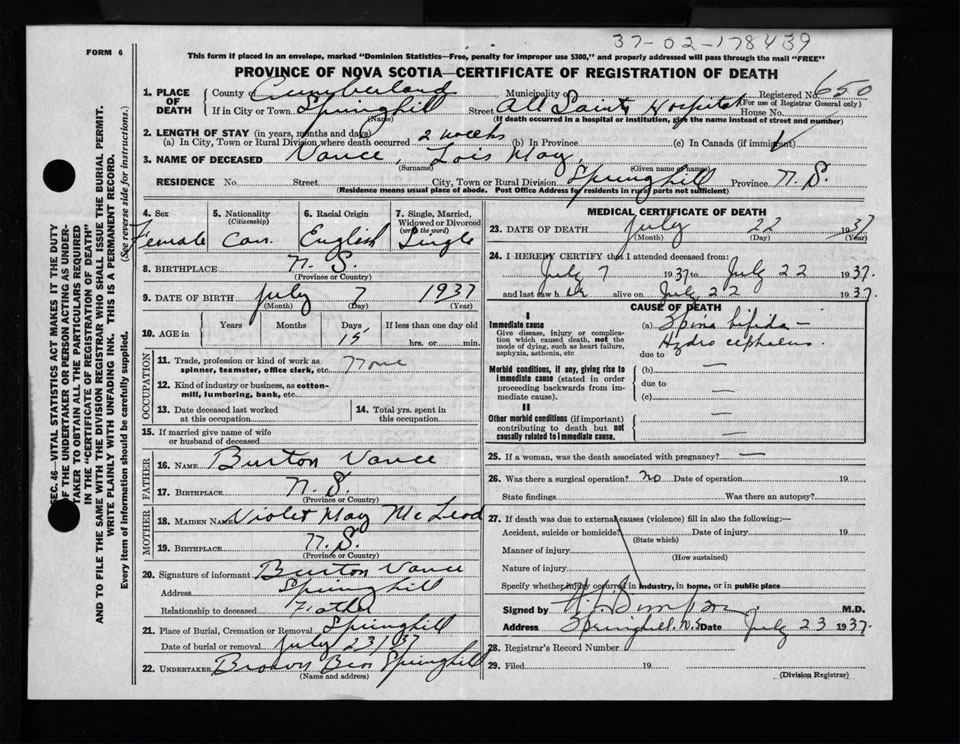 37-02-178439
FORM 6
This form if placed in an envelope, marked "Dominion Statistics—Free, penalty for improper use $300," and properly addressed will pass through the mail "FREE"
PROVINCE OF NOVA SCOTIA—CERTIFICATE OF REGISTRATION OF DEATH
SEC. 46—VITAL STATISTICS ACT MAKES IT THE DUTY
OF THE UNDERTAKER OR PERSON ACTING AS UNDER-
TAKER TO OBTAIN ALL THE PARTICULARS REQUIRED
IN THE "CERTIFICATE OF REGISTRATION OF DEATH"
AND TO FILE THE SAME WITH THE DIVISION REGISTRAR WHO SHALL ISSUE THE BURIAL PERMIT.
WRITE PLAINLY WITH UNFADING INK. THIS IS A PERMANENT RECORD.
Every item of information should be carefully supplied. (See reverse side for instructions.)
1. PLACE OF DEATH County Cumberland Municipality Registered No. 650
(For use of Registrar General only)
If in City or Town Springhill Street All Saints Hospital House No.
(Name) (If death occurred in a hospital or institution, give the name instead of street and number)
2. LENGTH OF STAY (in years, months and days)
(a) In City, Town or Rural Division where death occurred 2 weeks (b) In Province (c) In Canada (if immigrant)
3. NAME OF DECEASED Vance, Lois May
(Surname) (Given name or names)
RESIDENCE No. Street City, Town or Rural Division Springhill Province N. S.
(Residence means usual place of abode. Post Office Address for residents in rural parts not sufficient)
4. Sex Female
5. Nationality (Citizenship) Can.
6. Racial Origin English
7. Single, Married, Widowed or Divorced (write the word) Single
8. BIRTHPLACE N. S.
(Province or Country)
9. DATE OF BIRTH July 7 1937
(Month) (Day) (Year)
10. AGE in Years Months Days 15 If less than one day old hrs. or min.
OCCUPATION
11. Trade, profession or kind of work as spinner, teamster, office clerk, etc. None
12. Kind of industry or business, as cotton-mill, lumbering, bank, etc.
13. Date deceased last worked at this occupation
14. Total yrs. spent in this occupation
15. If married give name of wife or husband of deceased
FATHER
16. NAME Burton Vance
17. BIRTHPLACE N. S.
(Province or Country)
MOTHER
18. MAIDEN NAME Violet May McLeod
19. BIRTHPLACE N. S.
(Province or Country)
20. Signature of informant Burton Vance
Address Springhill
Relationship to deceased Father
21. Place of Burial, Cremation or Removal Springhill
Date of burial or removal July 23/37
22. UNDERTAKER Brown Bros Springhill
(Name and address)
MEDICAL CERTIFICATE OF DEATH
23. DATE OF DEATH July 22 1937
(Month) (Day) (Year)
24. I HEREBY CERTIFY that I attended deceased from:
July 7 1937 to July 22 1937.
and last saw h er alive on July 22 1937.
CAUSE OF DEATH
I
Immediate cause
Give disease, injury or complication which caused death, not the mode of dying, such as heart failure, asphyxia, asthenia, etc
(a) Spina bifida —
Hydrocephalus.
due to
Morbid conditions, if any, giving rise to immediate cause (stated in order proceeding backwards from immediate cause).
(b) —
due to
(c) —
II
Other morbid conditions (if important) contributing to death but not causally related to immediate cause.
—
—
25. If a woman, was the death associated with pregnancy? —
26. Was there a surgical operation? No Date of operation 19
State findings Was there an autopsy?
27. If death was due to external causes (violence) fill in also the following:—
Accident, suicide or homicide Date of injury 19
(State which)
Manner of injury
(How sustained)
Nature of injury
Specify whether injury occurred in industry, in home, or in public place
Signed by M.D.
Address Springhill. N.S. Date July 23 1937.
28. Registrar's Record Number
29. Filed 19
(Division Registrar)